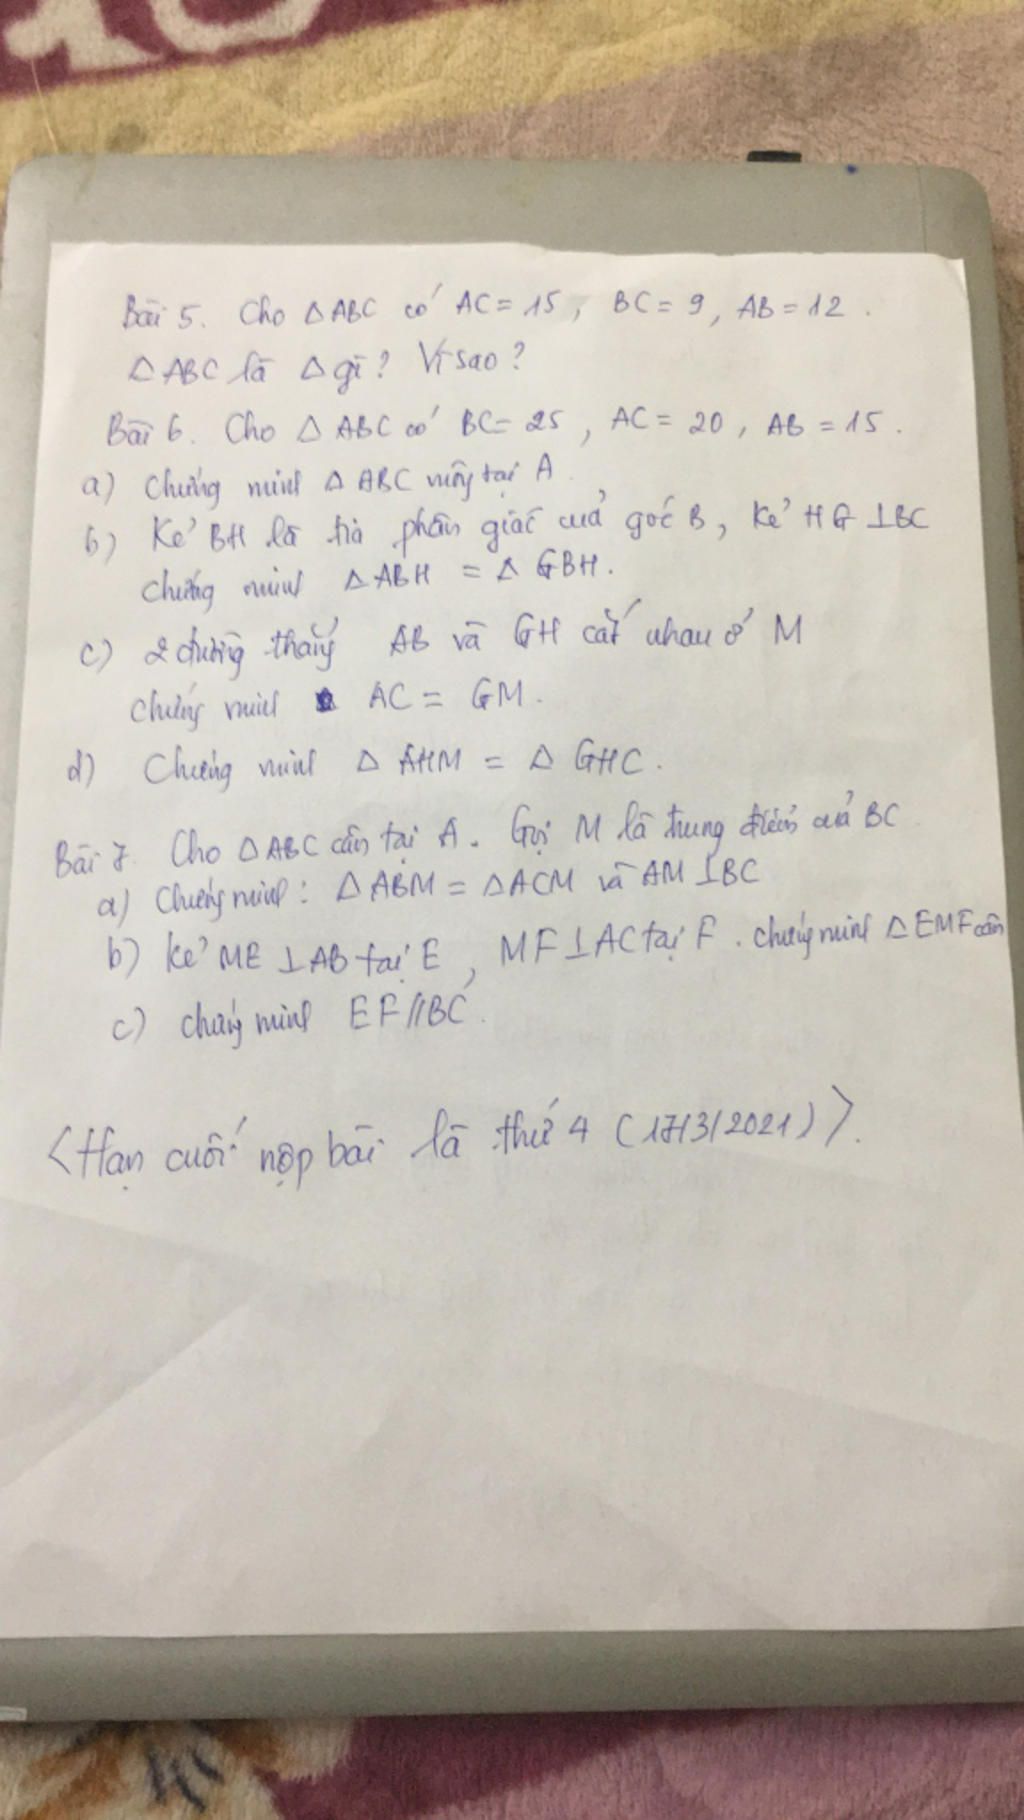 Bài 5. Cho △ABC có AC = 15, BC = 9, AB = 12.
△ABC là △gì? Vì sao?
Bài 6. Cho △ABC có BC = 25, AC = 20, AB = 15.
a) Chứng minh △ABC vuông tại A.
b) Kẻ BH là tia phân giác của góc B, Kẻ HG⊥BC
Chứng minh △ABH = △GBH.
c) 2 đường thẳng AB và GH cắt nhau ở M
Chứng minh AC = GM.
d) Chứng minh △AHM = △GHC.
Bài 7. Cho △ABC cân tại A. Gọi M là trung điểm của BC
a) Chứng minh: △ABM = △ACM và AM⊥BC
b) Kẻ ME⊥AB tại E, MF⊥AC tại F. chứng minh △EMF cân
c) chứng minh EF//BC.
<Hạn cuối nộp bài là thứ 4 (17/3/2021)>.